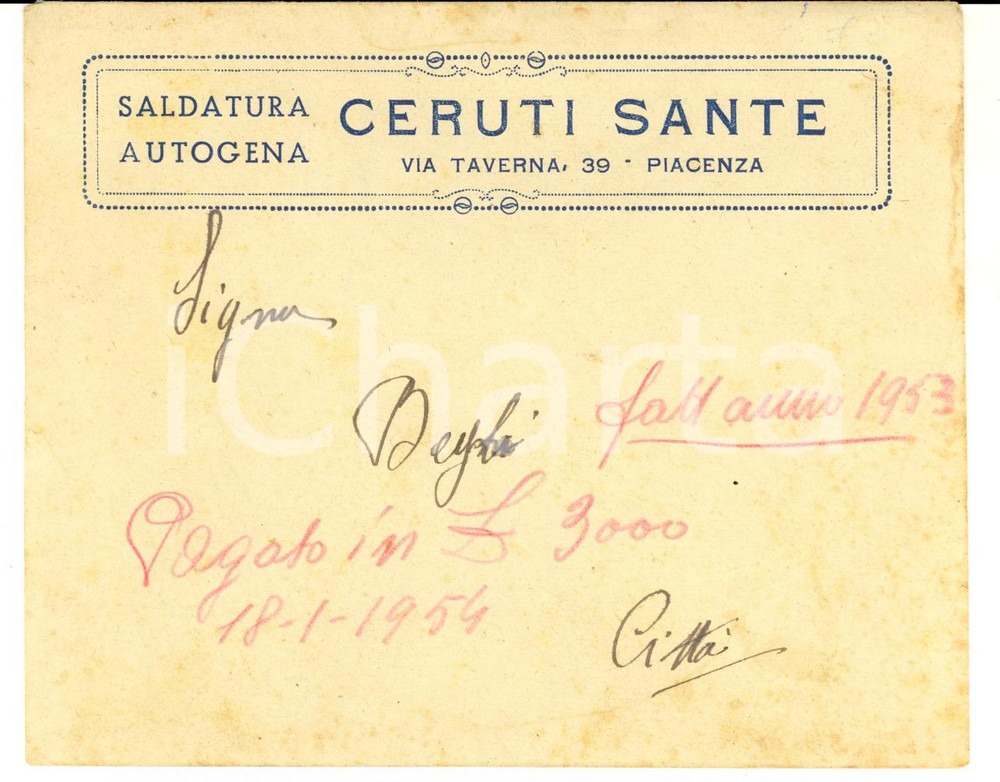 SALDATURA AUTOGENA
CERUTI SANTE
VIA TAVERNA, 39 - PIACENZA
Signor
iCharta
fatt anno 1953
Pagato in L 3000
18-1-1954
Città